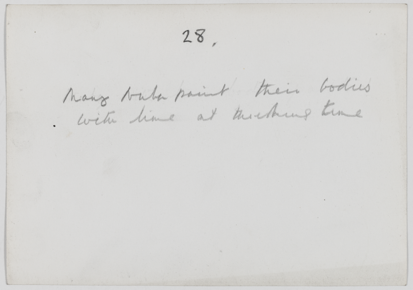 28.
Many Nuba paint their bodies
with lime at threshing time